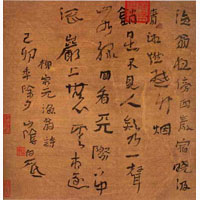 漁翁夜傍西巖宿曉汲
清湘燃楚竹烟
銷日出不見人欸乃一聲
山水綠回看天際下中
流巖上無心雲相逐
柳宗元漁翁詩
己卯年除夕山陰